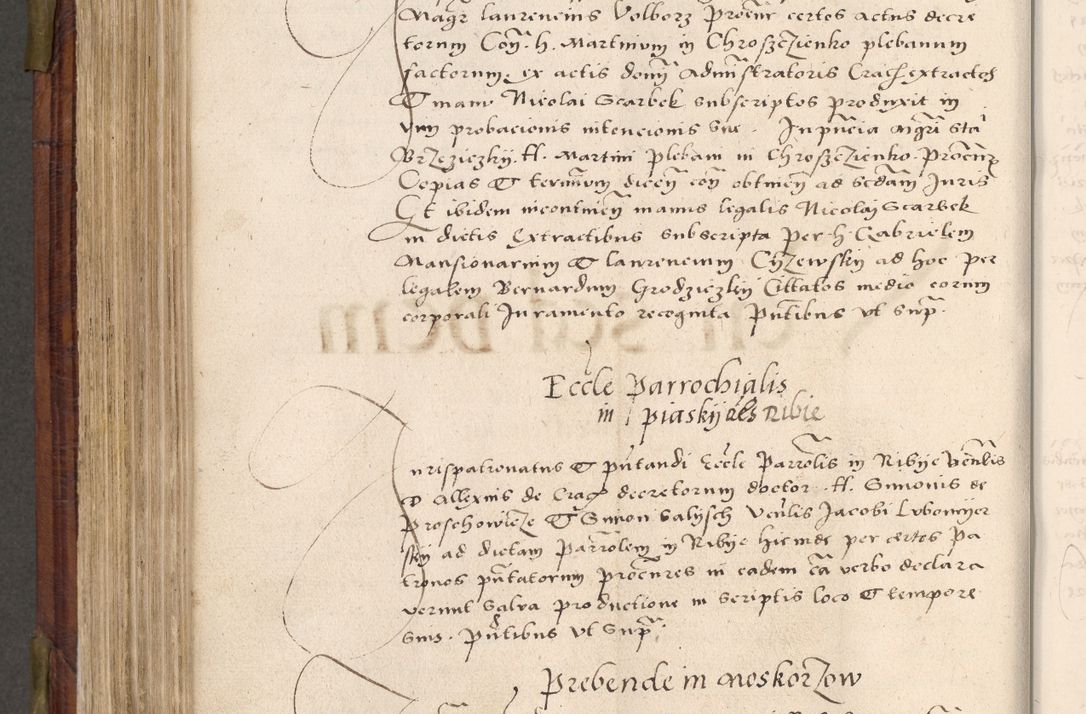 Magr laurencius Volborz Procur certos actus decre
torum Con. h. Martinum in Chroszczienko plebanum
factorum. ex actis domi Administratoris Crach extractos
manu Nicolai Scarbek subscriptos produxit in
vim probacionis intencionis sue. In pncia Mgri Sta
Brzeziczkÿ. H. Martini plebani in Chroszczienko. Procur
Copias terminum dicen con obtinen ad scdam Juris
Et ibidem incontinen manus legalis Nicolai Scarbek
in dictis extractibus subscripta per h. Gabrielem
Mansionarium laurencium Chzewskÿ ad hoc per
legalem Bernardum Grodziczkÿ Cittatos medio eorum
corporali Juramento recognita Pntibus vt sup.
Eccle Parrochialis
in piaskÿ als Ribie
urispatronatus pntandi Eccle Parrolis in Ribÿe venlis
D Allexius de Crac decretorum doctor. H. Simonis de
Proschowicze Simon Galÿsch venlis Jacobi Lubomÿer
skÿ ad dictam Parrolem in Ribÿe hicinde per certos pa
tronos pntatorum procures in eadem ca verbo declara
verunt salva productione in scriptis loco tempore
suis. Pntibus vt sup.
Prebende in Moskorzow